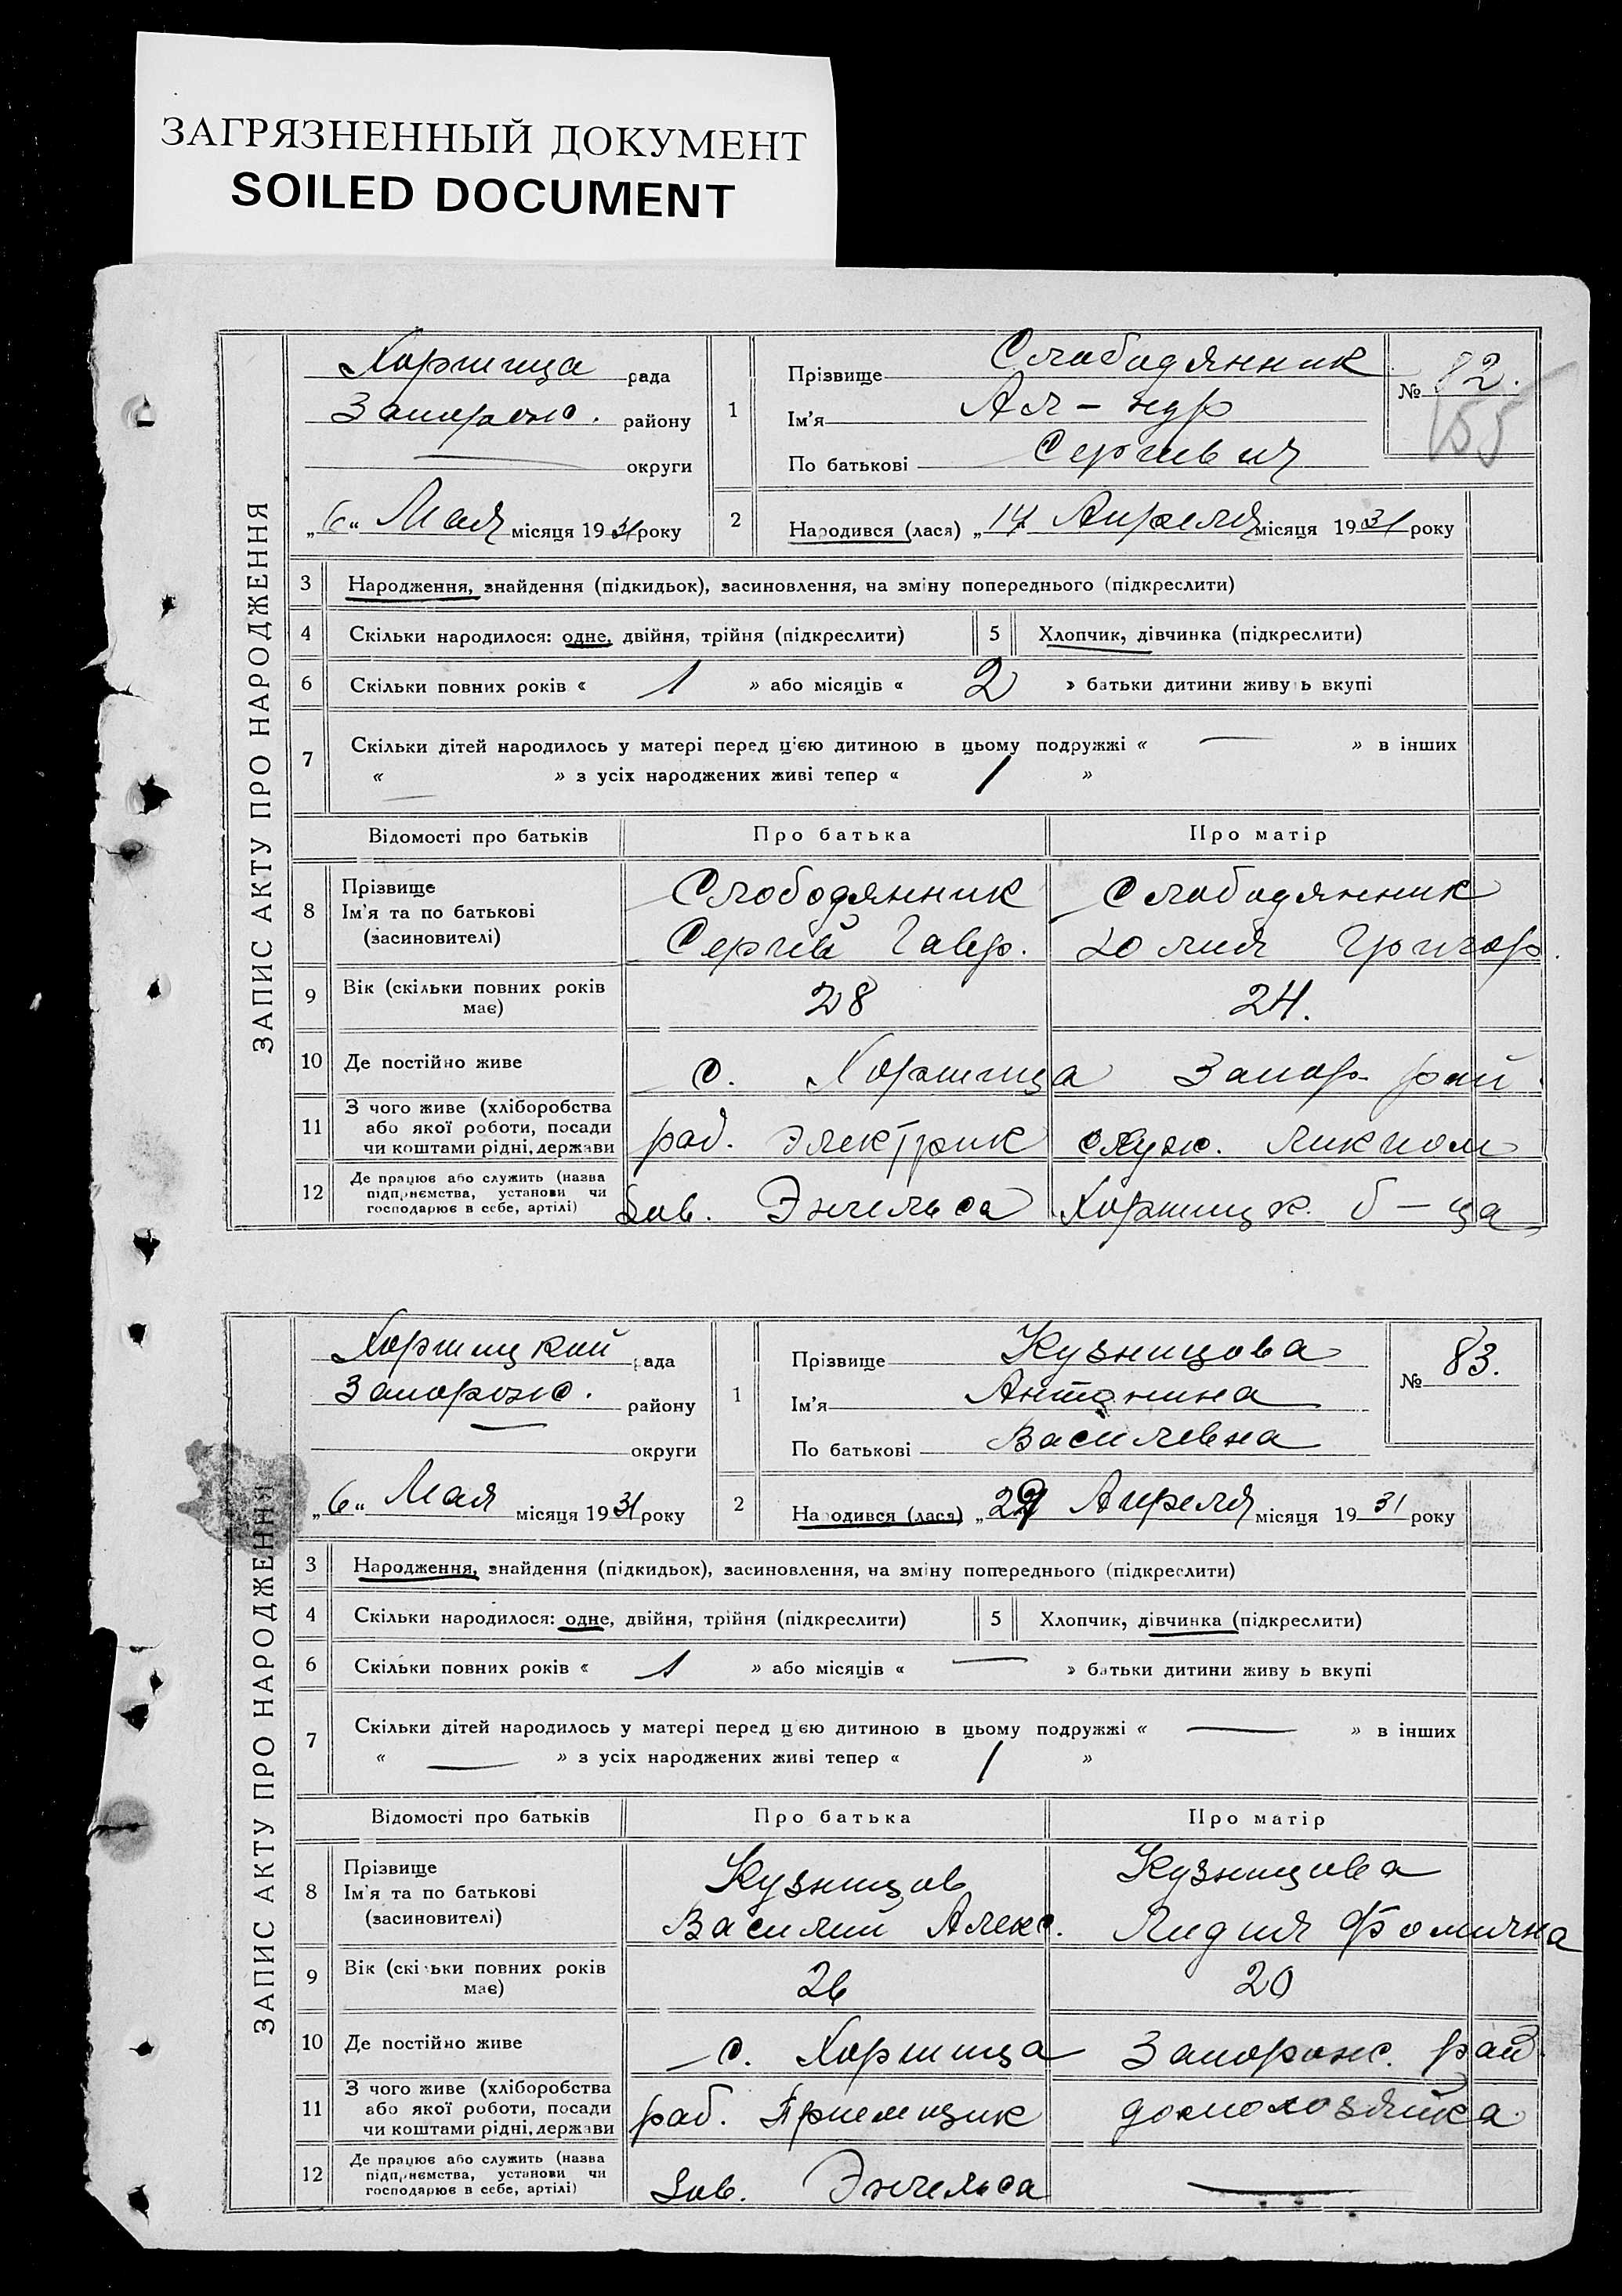 ЗАГРЯЗНЕННЫЙ ДОКУМЕНТ
SOILED DOCUMENT
ЗАПИС АКТУ ПРО НАРОДЖЕННЯ
Хортица рада
Запорож. району
— округи
„6“ Мая місяця 1931 року
1
Прізвище Слободянник
Ім'я Ал-ндр
По батькові Сергиевич
№ 82.
155
2 Народився (лася) „14 Апреля місяця 1931 року
3 Народження, знайдення (підкидьок), засиновлення, на зміну попереднього (підкреслити)
4 Скільки народилося: одне, двійня, трійня (підкреслити) 5 Хлопчик, дівчинка (підкреслити)
6 Скільки повних років « 1 » або місяців « 2 » батьки дитини живу ь вкупі
7 Скільки дітей народилось у матері перед цією дитиною в цьому подружжі « — » в інших
« — » з усіх народжених живі тепер « 1 »
Відомості про батьків Про батька Про матір
8 Прізвище
Ім'я та по батькові
(засиновителі)
Слободянник Слободянник
Сергей Гавр. Юлия Григор.
9 Вік (скільки повних років має) 28 24.
10 Де постійно живе с. Хортица Запор. рай.
11 З чого живе (хліборобства
або якої роботи, посади
чи коштами рідні, держави
раб. электрик служ. ликпом
12 Де працює або служить (назва
підприємства, установи чи
господарює в себе, артілі)
Зав. Энгельса Хортицк. б-ца
ЗАПИС АКТУ ПРО НАРОДЖЕННЯ
Хортицкой рада
Запорож. району
— округи
„6“ Мая місяця 1931 року
1
Прізвище Кузницова
Ім'я Антонина
По батькові Василевна
№ 83.
2 На одився (лася) „ Апреля місяця 1931 року
3 Народження, знайдення (підкидьок), засиновлення, на зміну попереднього (підкреслити)
4 Скільки народилося: одне, двійня, трійня (підкреслити) 5 Хлопчик, дівчинка (підкреслити)
6 Скільки повних років « 1 » або місяців « — » батьки дитини живу ь вкупі
7 Скільки дітей народилось у матері перед ц єю дитиною в цьому подружжі « — » в інших
« — » з усіх народжених живі тепер « 1 »
Відомості про батьків Про батька Про матір
8 Прізвище
Ім'я та по батькові
(засиновителі)
Кузницов Кузницова
Василий Алекс. Лидия Фомична
9 Вік (скільки повних років має) 26 20
10 Де постійно живе с. Хортица Запорож. рай.
11 З чого живе (хліборобства
або якої роботи, посади
чи коштами рідні, держави
раб. Приемщик домохозяйка
12 Де працює або служить (назва
підприємства, установи чи
господарює в себе, артілі)
Зав. Энгельса —